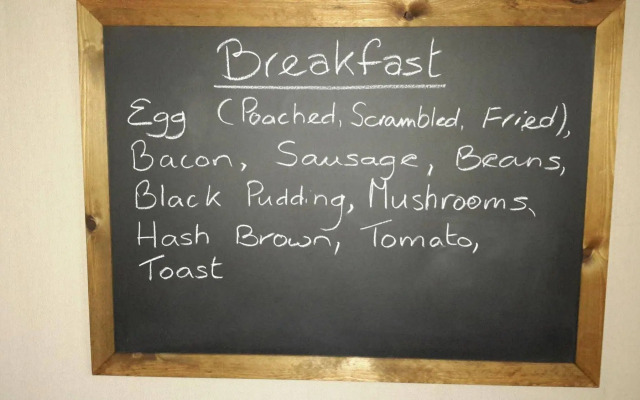 Breakfast
Egg (Poached, Scrambled, Fried),
Bacon, Sausage, Beans,
Black Pudding, Mushrooms,
Hash Brown, Tomato,
Toast